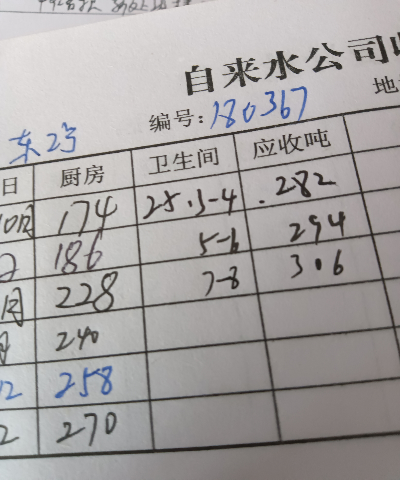 自来水公司
编号：180367 地
东2号
日 厨房 卫生间 应收吨
10月 174 25.3-4 .282
2 186 5-6 294
月 228 7-8 306
月 240
12 258
2 270